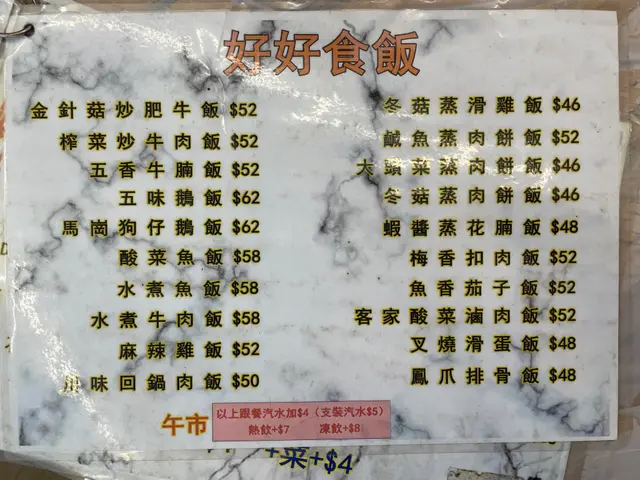 好好食飯
金針菇炒肥牛飯 $52
榨菜炒牛肉飯 $52
五香牛腩飯 $52
五味鵝飯 $62
馬崗狗仔鵝飯 $62
酸菜魚飯 $58
水煮魚飯 $58
水煮牛肉飯 $58
麻辣雞飯 $52
味回鍋肉飯 $50
冬菇蒸滑雞飯 $46
鹹魚蒸肉餅飯 $52
大頭菜蒸肉餅飯 $46
冬菇蒸肉餅飯 $46
蝦醬蒸花腩飯 $48
梅香扣肉飯 $52
魚香茄子飯 $52
客家酸菜滷肉飯 $52
叉燒滑蛋飯 $48
鳳爪排骨飯 $48
午市
以上跟餐汽水加$4（支裝汽水$5）
熱飲+$7 凍飲+$8
+菜+$4